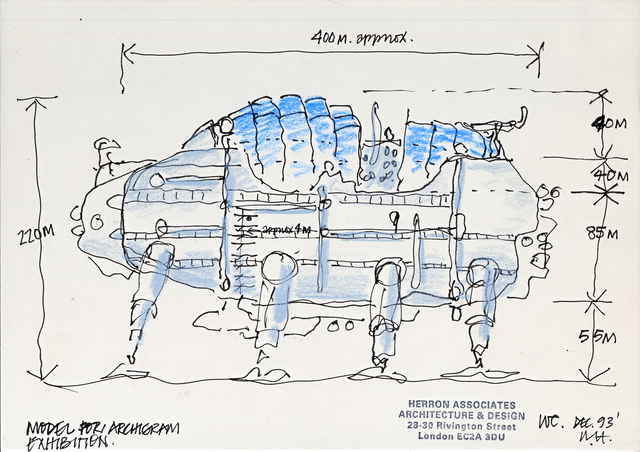 400M. approx.
40M
40M
220M
approx 4M
85M
55M
MODEL FOR ARCHIGRAM
EXHIBITION.
HERRON ASSOCIATES
ARCHITECTURE & DESIGN
28-30 Rivington Street
London EC2A 3DU
DEC. 93'